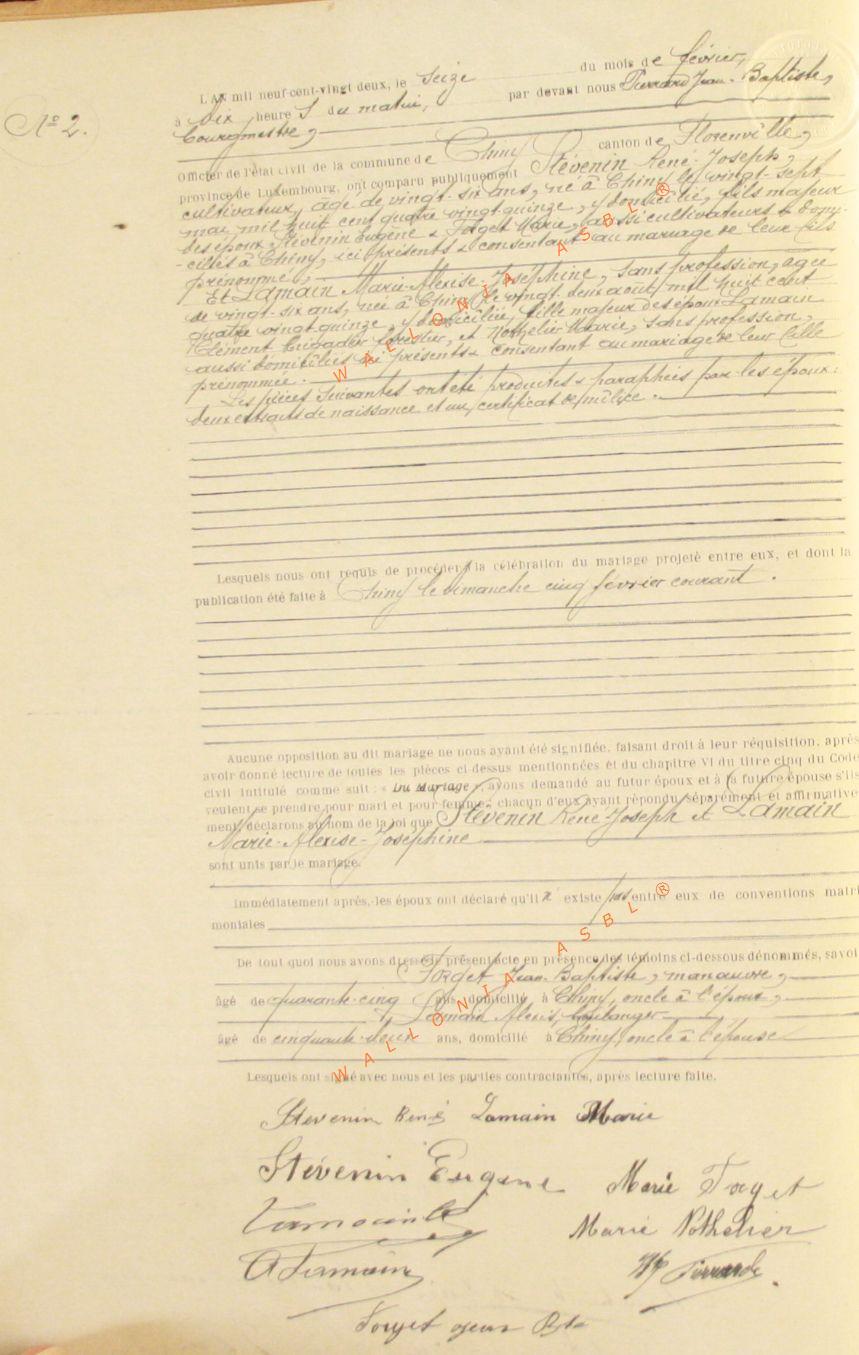 Nº 2.
L'AN mil neuf-cent-vingt deux, le seize du mois de février,
à Dix heures du matin, par devant nous Pierrard Jean-Baptiste,
bourgmestre,
Officier de l'état civil de la commune de Chiny canton de Florenville,
province de Luxembourg, ont comparu publiquement Stévenin René-Joseph,
cultivateur, âgé de vingt-six ans, né à Chiny le vingt-sept
mai mil huit cent quatre vingt-quinze, y domicilié, fils majeur
des époux Stévenin Eugène & Forget Marie, aussi cultivateurs & domi-
-ciliés à Chiny, ici présents & consentant au mariage de leur fils
prénommé,
Et Lamain Marie-Alexise-Joséphine, sans profession, agée
de vingt-six ans, née à Chiny le vingt-deux août mil huit cent
quatre vingt-quinze, y domiciliée, fille majeur des époux Lamain
Clément brigadier forestier, et Nothelier Marie, sans profession,
aussi domiciliés ici présents & consentant au mariage de leur fille
prénommée.
Les pièces suivantes ont été produites & paraphées par les époux:
deux extraits de naissance et un certificat de milice.
Lesquels nous ont requis de procéder à la célébration du mariage projeté entre eux, et dont la
publication été faite à Chiny le Dimanche cinq février courant.
Aucune opposition au dit mariage ne nous ayant été signifiée, faisant droit à leur réquisition, après
avoir donné lecture de toutes les pièces ci-dessus mentionnées et du chapitre VI du titre cinq du Code
civil intitulé comme suit : « Du Mariage », avons demandé au futur époux et à la future épouse s'ils
veulent se prendre pour mari et pour femme; chacun d'eux ayant répondu séparément et affirmative
ment, déclarons au nom de la loi que Stévenin René Joseph et Lamain
Marie-Alexise-Joséphine
sont unis par le mariage.
Immédiatement après, les époux ont déclaré qu'il n'existe pas entre eux de conventions matri
moniales
De tout quoi nous avons dressé le présent acte en présence des témoins ci-dessous dénommés, savoi
Forget Jean-Baptiste, manœuvre,
âgé de quarante-cinq ans, domicilié à Chiny, oncle à l'époux,
Lamain Alexis, boulanger
âgé de cinquante-deux ans, domicilié à Chiny, oncle à l'épouse
Lesquels ont signé avec nous et les parties contractantes, après lecture faite.
Stévenin René Lamain Marie
Stévenin Eugène Marie Forget
Lamain Marie Nothelier
A Lamain Pierrard
Forget Jean Bte
WALLONIA ASBL ®
WALLONIA ASBL ®